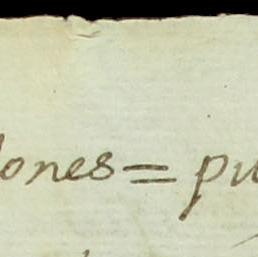 ones = pu